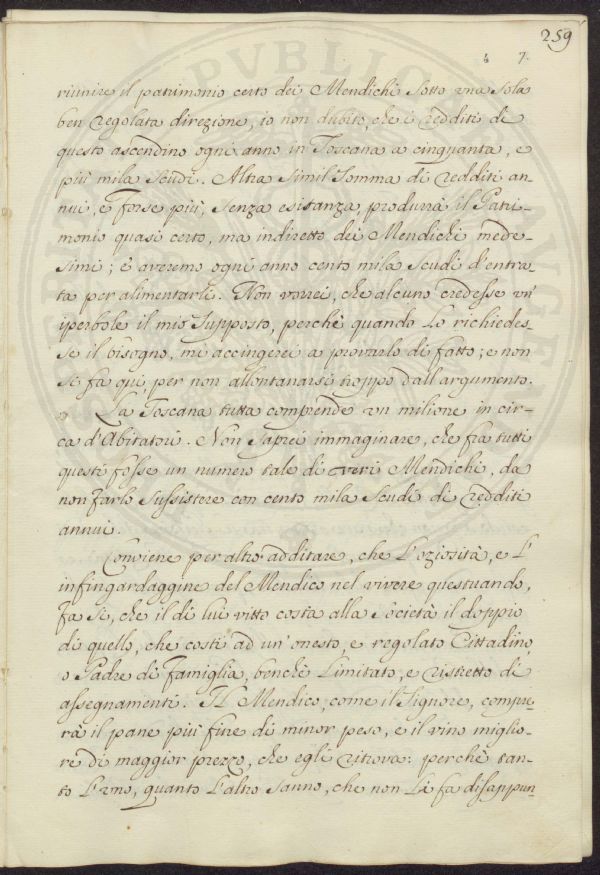 259
4 7.
riunire il patrimonio certo dei Mendichi sotto una sola
ben regolata direzione, io non dubito, che i redditi di
questo ascendino ogni anno in Toscana a cinquanta, e
più mila Scudi. Altra simil somma di redditi an-
nui, e forse più, senza esitanza, produrrà il Patri-
monio quasi certo, ma indiretto dei Mendichi mede-
simi; e averemo ogni anno cento mila Scudi d'entra-
ta per alimentarli. Non vorrei, che alcuno credesse un'
iperbole il mio supposto, perchè quando lo richiedes-
se il bisogno, mi accingerei a provarlo di fatto; e non
si fa qui, per non allontanarsi troppo dall'argumento.
La Toscana tutta comprende un milione in cir-
ca d'Abitatori. Non saprei immaginare, che fra tutti
questi fosse un numero tale di veri Mendichi, da
non farlo sussistere con cento mila Scudi di redditi
annui.
Conviene per altro additare, che l'oziosità, e l'
infingardaggine del Mendico nel vivere questuando,
fa sì, che il di lui vitto costa alla Società il doppio
di quello, che costi ad un'onesto, e regolato Cittadino,
o Padre di famiglia, benchè limitato, e ristretto di
assegnamenti. Il Mendico, come il Signore, compre-
rà il pane più fine di minor peso, e il vino miglio-
re di maggior prezzo, che egli ritrova: perchè tan-
to l'uno, quanto l'altro sanno, che non li fa disappun-